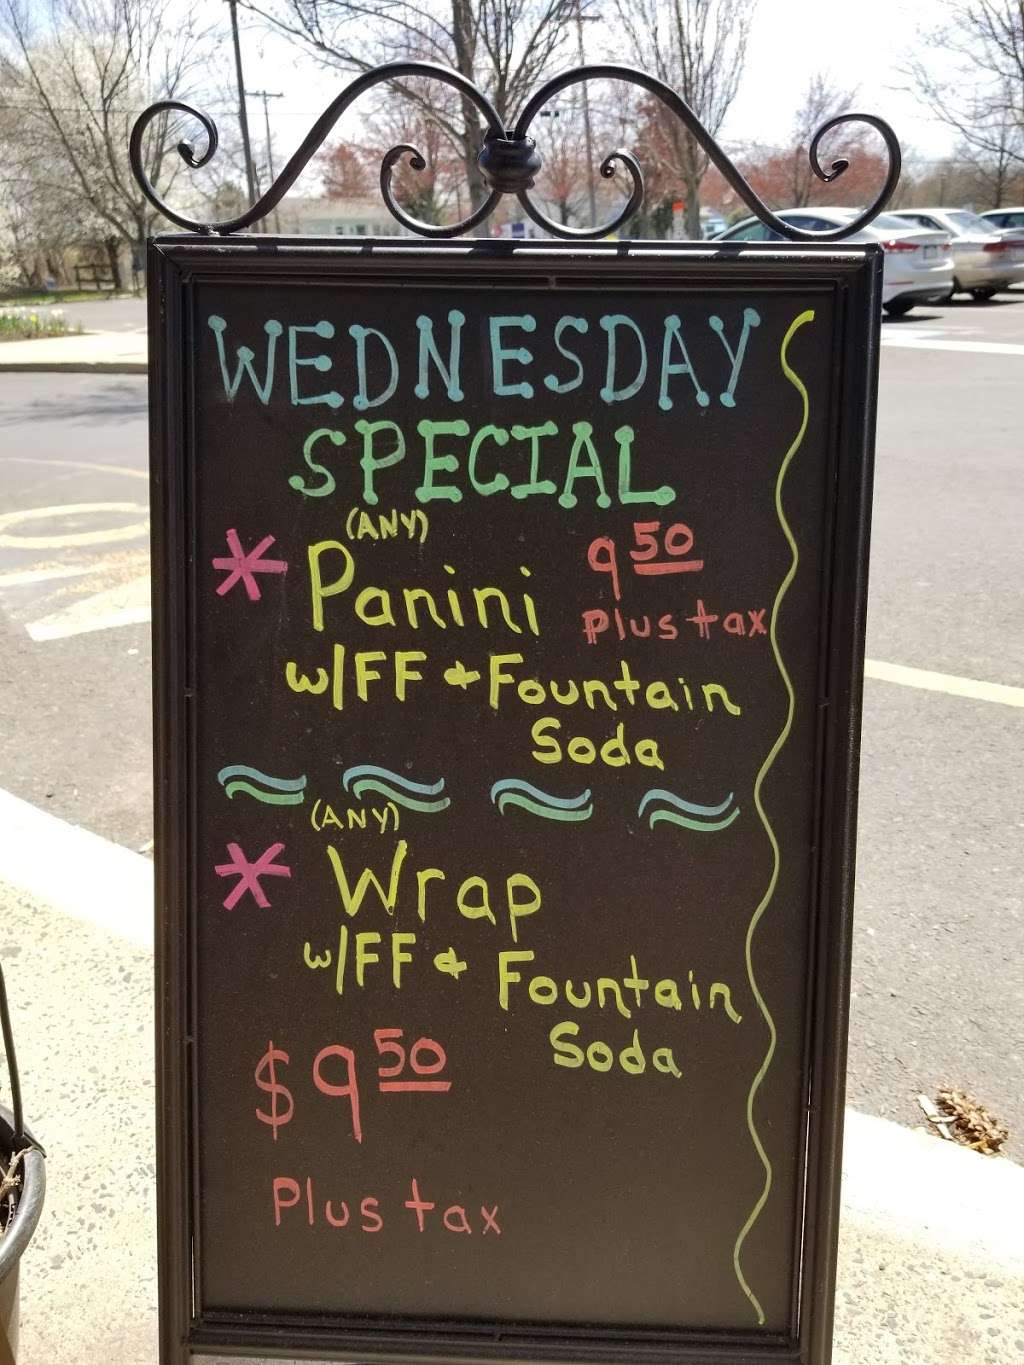 WEDNESDAY
SPECIAL
(ANY)
* Panini 9 50
plus tax
w/FF & Fountain
Soda
(ANY)
* Wrap
w/FF & Fountain
Soda
$9 50
Plus tax